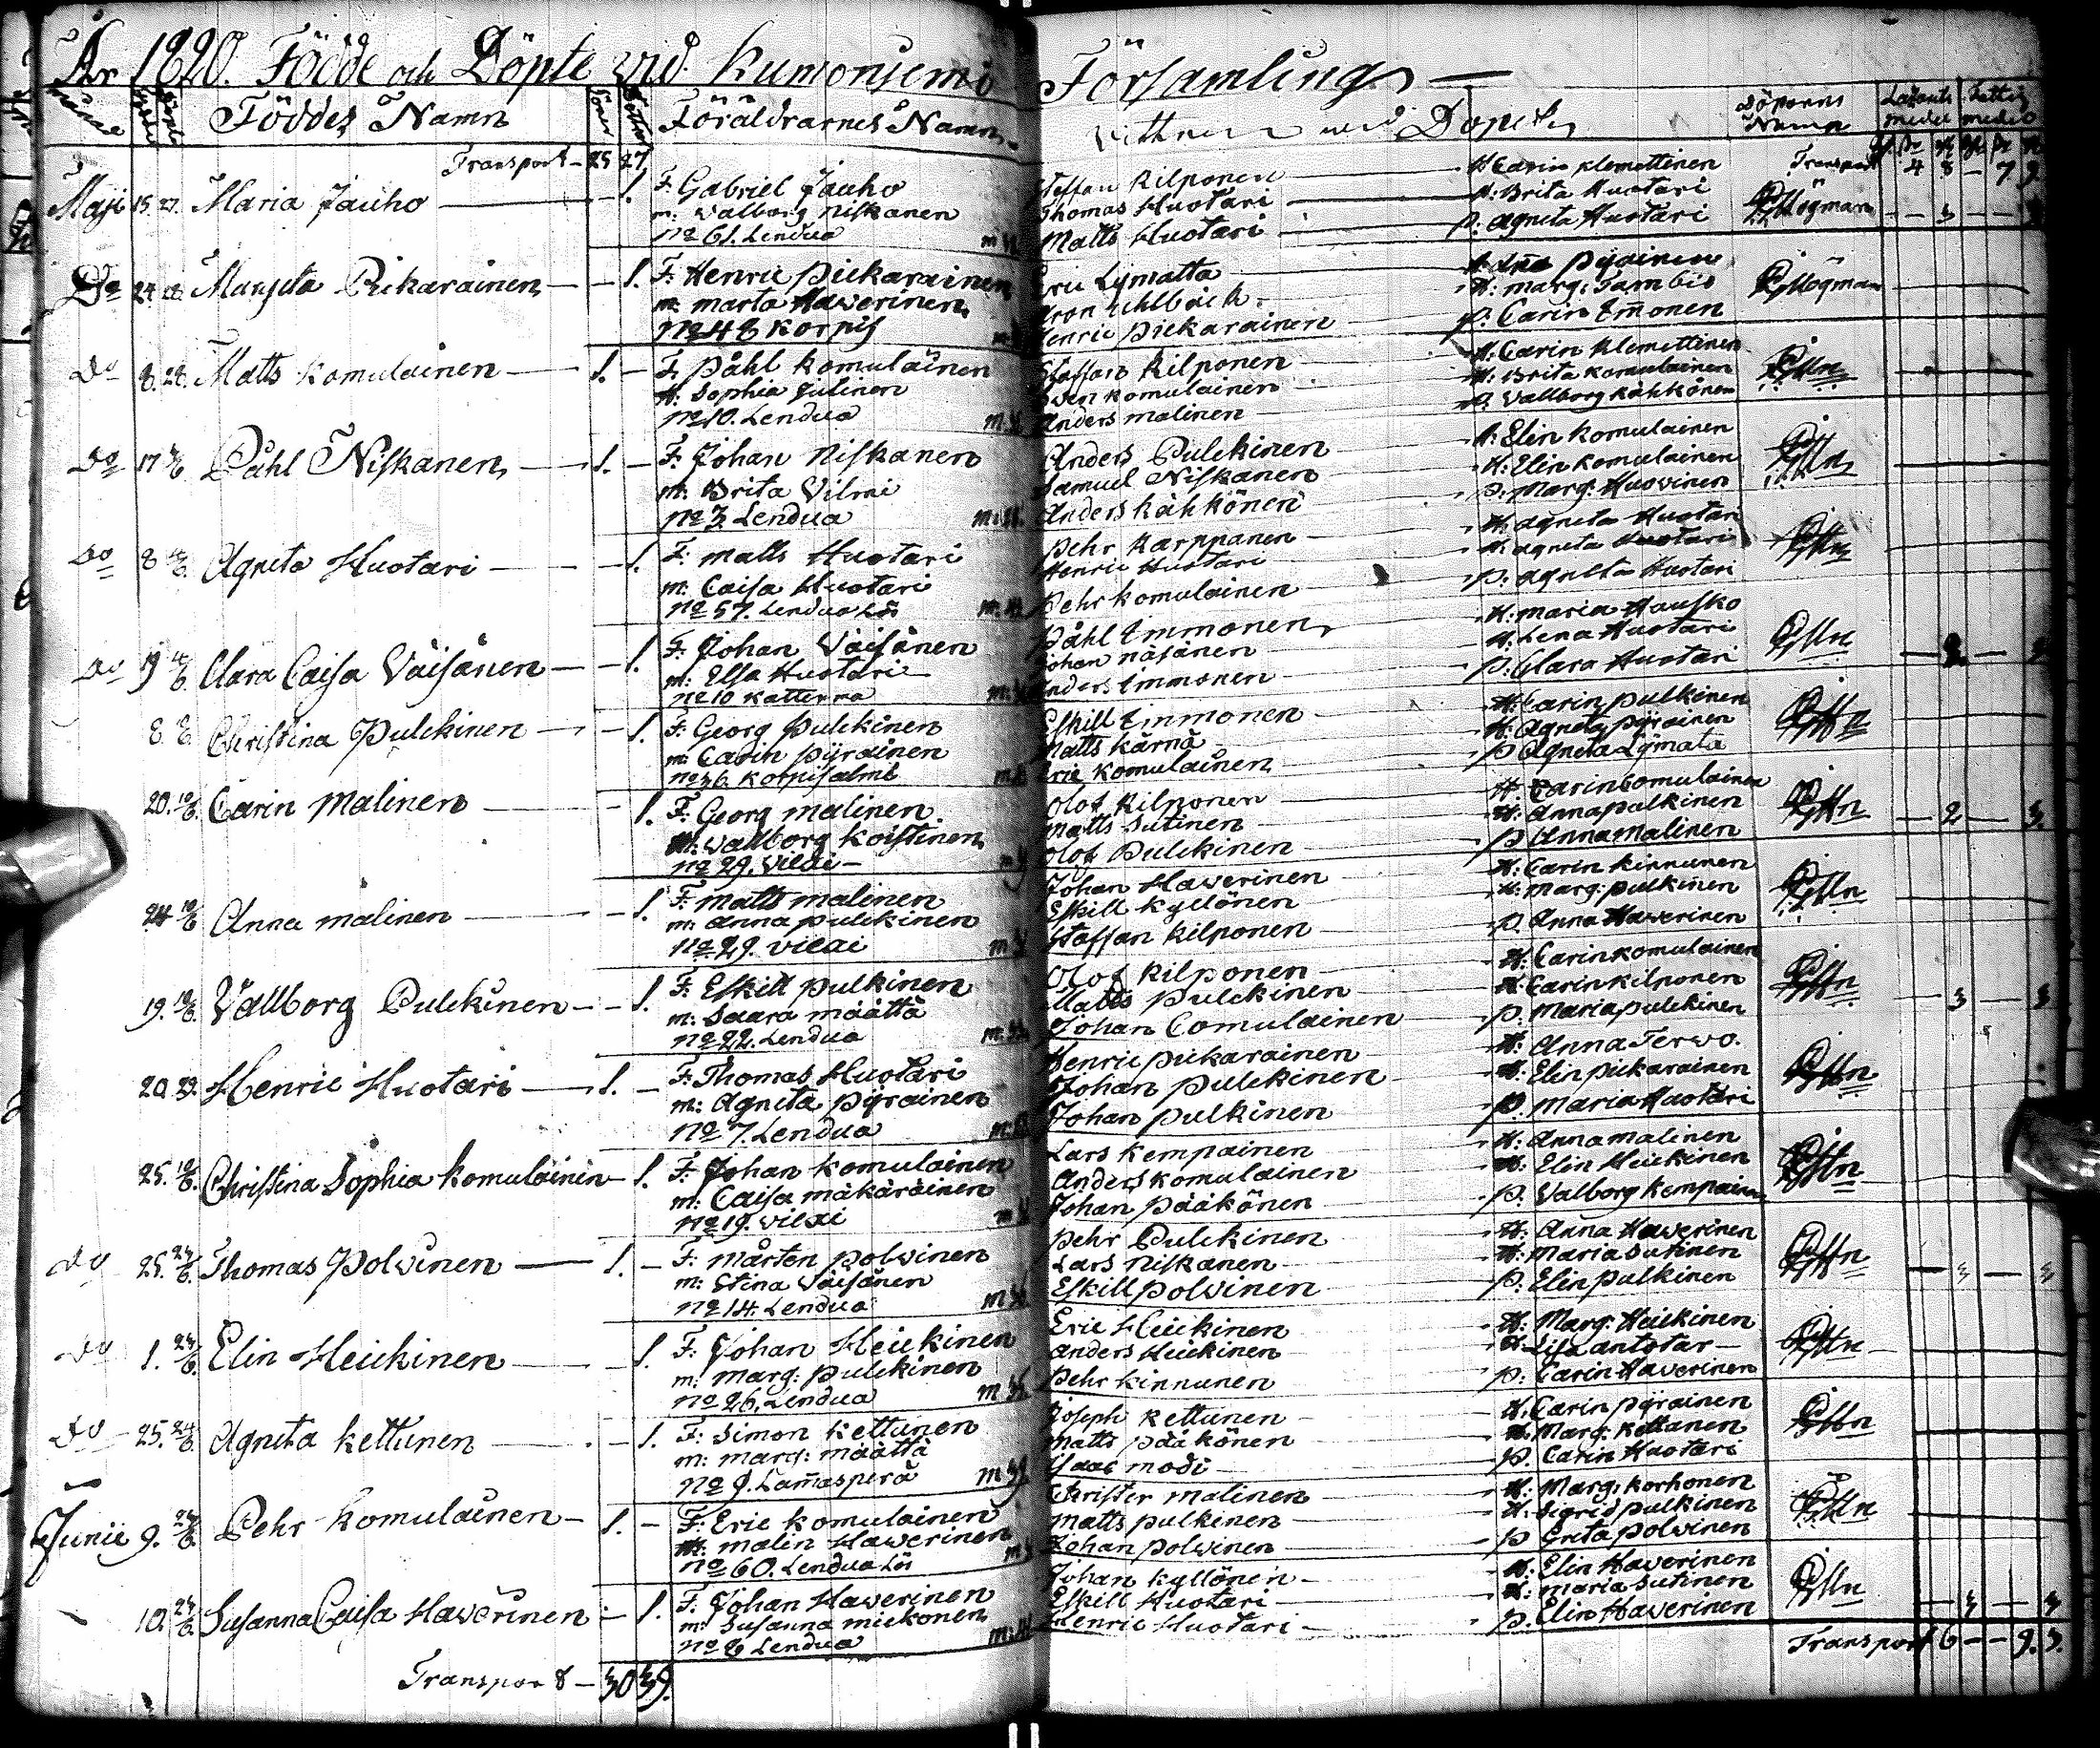 År 1820. Födde och Döpte vid Kumonjemi Församling
Födde Döpte Föddes Namn Söner Döttrar Föräldrarnes Namn Vittnen Döparens Namn
Transport - 25 27 Transport 4 8 - 7 9
Maji 15 27 Maria Jauho - 1. F: Gabriel Jauho Steffan Kilponen H: Carin Klemettinen
m: Valborg Niskanen Thomas Huotari H: Brita Huotari Högman
No 61. Lendua Matts Huotari p: Agneta Huotari
Do 24 28 Margeta Pickarainen - 1. F: Henric Pickarainen Eric Lymatta Pyäinen
m: Marta Hawerinen Aron Uhlbäck H: Marg:
No 48 Korpis Henric Pickarainen p: Carin Immonen Högman
Do 8. 28. Matts Komulainen 1. - F: Påhl Komulainen Staffan Kilponen H: Carin Klemettinen
M: Sophia Julinen Sven Komulainen H: Brita Komulainen
No 10. Lendua Anders Malinen p: Vallborg Kähkönen
Do 17 Påhl Niskanen 1. - F: Johan Niskanen Anders Pulckinen H: Elin Komulainen
m: Brita Vilmi Samuel Niskanen H: Elin Komulainen
No 3. Lendua Anders Kähkönen p: Marg: Huovinen
Do 8 4/6 Agneta Huotari - 1. F: Matts Huotari Pehr Karppanen H: Agneta Huotari
m: Caisa Huotari Henric Huotari H: Agneta Huotari
No 57. Lendua Lös Pehr Komulainen p: Agneta Huotari
Do 19 4/6 Clara Caisa Väisänen - 1. F: Johan Väisänen Påhl Immonen H: Maria Hausko
m: Ella Huotari Johan Näsänen H: Lena Huotari
No 10 Katterma Anders Immonen p: Clara Huotari
8. Christina Pulckinen - 1. F: Georg Pulckinen Eskill Immonen H: Carin Pulkinen
m: Carin Pyräinen Matts Kärnä H: Agneta Pyräinen
No 36. Korpisalmi Eric Komulainen p: Agneta Lymata
20. 10/6. Carin Malinen - 1. F: Georg Malinen Olof Kilponen H: Carin Comulainen
M: Wallborg Koistinen Matts Sutinen H: Anna Pulkinen 2 - 3.
No 29. Vieki Olof Pulckinen p: Anna Malinen
24 10/6 Anna Malinen - 1. F: Matts Malinen Johan Hawerinen H: Carin Kinnunen
m: Anna Pulckinen Eskill Kyllönen H: Marg: Pulkinen
No 29. Vieki Staffan Kilponen p: Anna Hawerinen
19. 10/6. Vallborg Pulckinen - 1. F: Eskill Pulkinen Olof Kilponen H: Carin Komulainen
m: Saara Määttä Matts Pulckinen H: Carin Kilponen
No 22. Lendua Johan Comulainen p: Maria Pulckinen 3 - 3
20. Henric Huotari 1. - F: Thomas Huotari Henric Pickarainen H: Anna Terwo.
m: Agneta Pyrainen Johan Pulckinen H: Elin Pickarainen
No 7. Lendua Johan Pulkinen p: Maria Huotari
25. 10/6. Christina Sophia Komulainen - 1. F: Johan Komulainen Lars Kempainen H: Anna Malinen
m: Caisa Mäkäräinen Anders Komulainen H: Elin Heickinen
No 19. Vieki Johan Pääkönen p: Valborg Kempainen
Do 25. 24/6. Thomas Polvinen 1. - F: Mårten Polvinen Pehr Pulckinen H: Anna Hawerinen
m: Stina Väisänen Lars Niskanen H: Maria Sutinen
No 14. Lendua Eskill Polvinen p: Elin Pulkinen 3 - 3
Do 1. 24/6. Elin Heickinen - 1. F: Johan Heickinen Eric Heickinen H: Marg: Heickinen
m: Marg: Pulckinen Anders Heickinen H: Lisa
No 26. Lendua Pehr Kinnunen p: Carin Hawerinen
Do 25. 24/6. Agneta Kettunen - 1. F: Simon Kettunen Joseph Kettunen H: Carin Pyrainen
m: Marg: Määttä Matts Pääkönen H: Marg: Kettunen
No 9. Lamasperä Isaac Modi p: Carin Huotari
Junii 9. 24/6. Pehr Komulainen 1. - F: Eric Komulainen Christer Malinen H: Marg: Korhonen
M: Malin Hawerinen Matts Pulkinen H: Sigrid Pulkinen
No 60. Lendua Lös Johan Polvinen p: Greta Polvinen
10. 24/6. Susanna Caisa Hawerinen - 1. F: Johan Hawerinen Johan Kyllönen H: Elin Haverinen
m: Susanna Mickonen Eskill Huotari H: Maria Sutinen
No 8 Lendua Henric Huotari p: Elin Haverinen 3 - 3
Transport - 30 39. Transport 6 - - 9. 9.